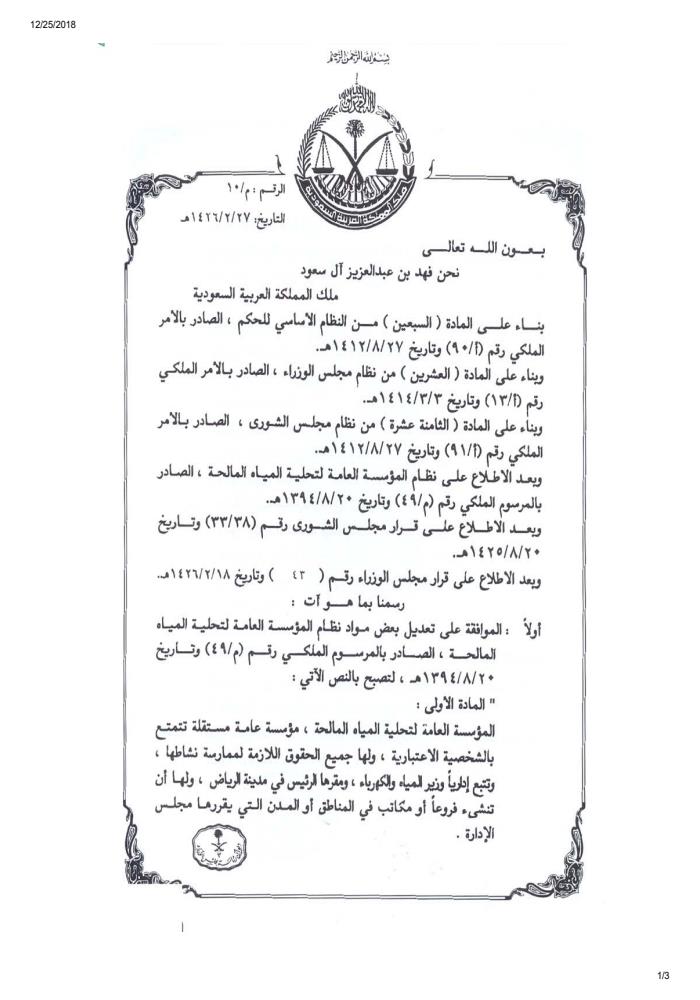 12/25/2018
بسم الله الرحمن الرحيم
ملك المملكة العربية السعودية
الرقم : م/١٠
التاريخ: ١٤٢٦/٢/٢٧هـ
بعون الله تعالى
نحن فهد بن عبدالعزيز آل سعود
ملك المملكة العربية السعودية
بناء على المادة ( السبعين ) من النظام الأساسي للحكم ، الصادر بالأمر
الملكي رقم (أ/٩٠) وتاريخ ١٤١٢/٨/٢٧هـ.
وبناء على المادة ( العشرين ) من نظام مجلس الوزراء ، الصادر بالأمر الملكي
رقم (أ/١٣) وتاريخ ١٤١٤/٣/٣هـ.
وبناء على المادة ( الثامنة عشرة ) من نظام مجلس الشورى ، الصادر بالأمر
الملكي رقم (أ/٩١) وتاريخ ١٤١٢/٨/٢٧هـ.
وبعد الاطلاع على نظام المؤسسة العامة لتحلية المياه المالحة ، الصادر
بالمرسوم الملكي رقم (م/٤٩) وتاريخ ١٣٩٤/٨/٢٠هـ.
وبعد الاطلاع على قرار مجلس الشورى رقم (٣٣/٣٨) وتاريخ
١٤٢٥/٨/٢٠هـ.
وبعد الاطلاع على قرار مجلس الوزراء رقم ( ٤٣ ) وتاريخ ١٤٢٦/٢/١٨هـ.
رسمنا بما هو آت :
أولاً : الموافقة على تعديل بعض مواد نظام المؤسسة العامة لتحلية المياه
المالحة ، الصادر بالمرسوم الملكي رقم (م/٤٩) وتاريخ
١٣٩٤/٨/٢٠هـ ، لتصبح بالنص الآتي :
" المادة الأولى :
المؤسسة العامة لتحلية المياه المالحة ، مؤسسة عامة مستقلة تتمتع
بالشخصية الاعتبارية ، ولها جميع الحقوق اللازمة لممارسة نشاطها ،
وتتبع إدارياً وزير المياه والكهرباء ، ومقرها الرئيس في مدينة الرياض ، ولها أن
تنشىء فروعاً أو مكاتب في المناطق أو المدن التي يقررها مجلس
الإدارة .
1/3